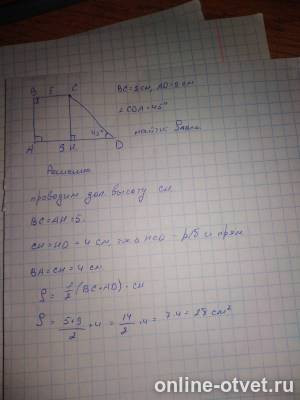 B 5 C
BC=5см, AD=9см
∠CDA=45°
45°
найти: Sавсд
A 9 H D
Решение
проводим доп. высоту CH
BC=AH=5
CH=HD=4 см, т.к Δ HCD - р/б и прям
BA=CH=4 см
S=1/2(BC+AD)·CH
S=5+9/2·4=14/2·4=7·4=28 см²
online-otvet.ru